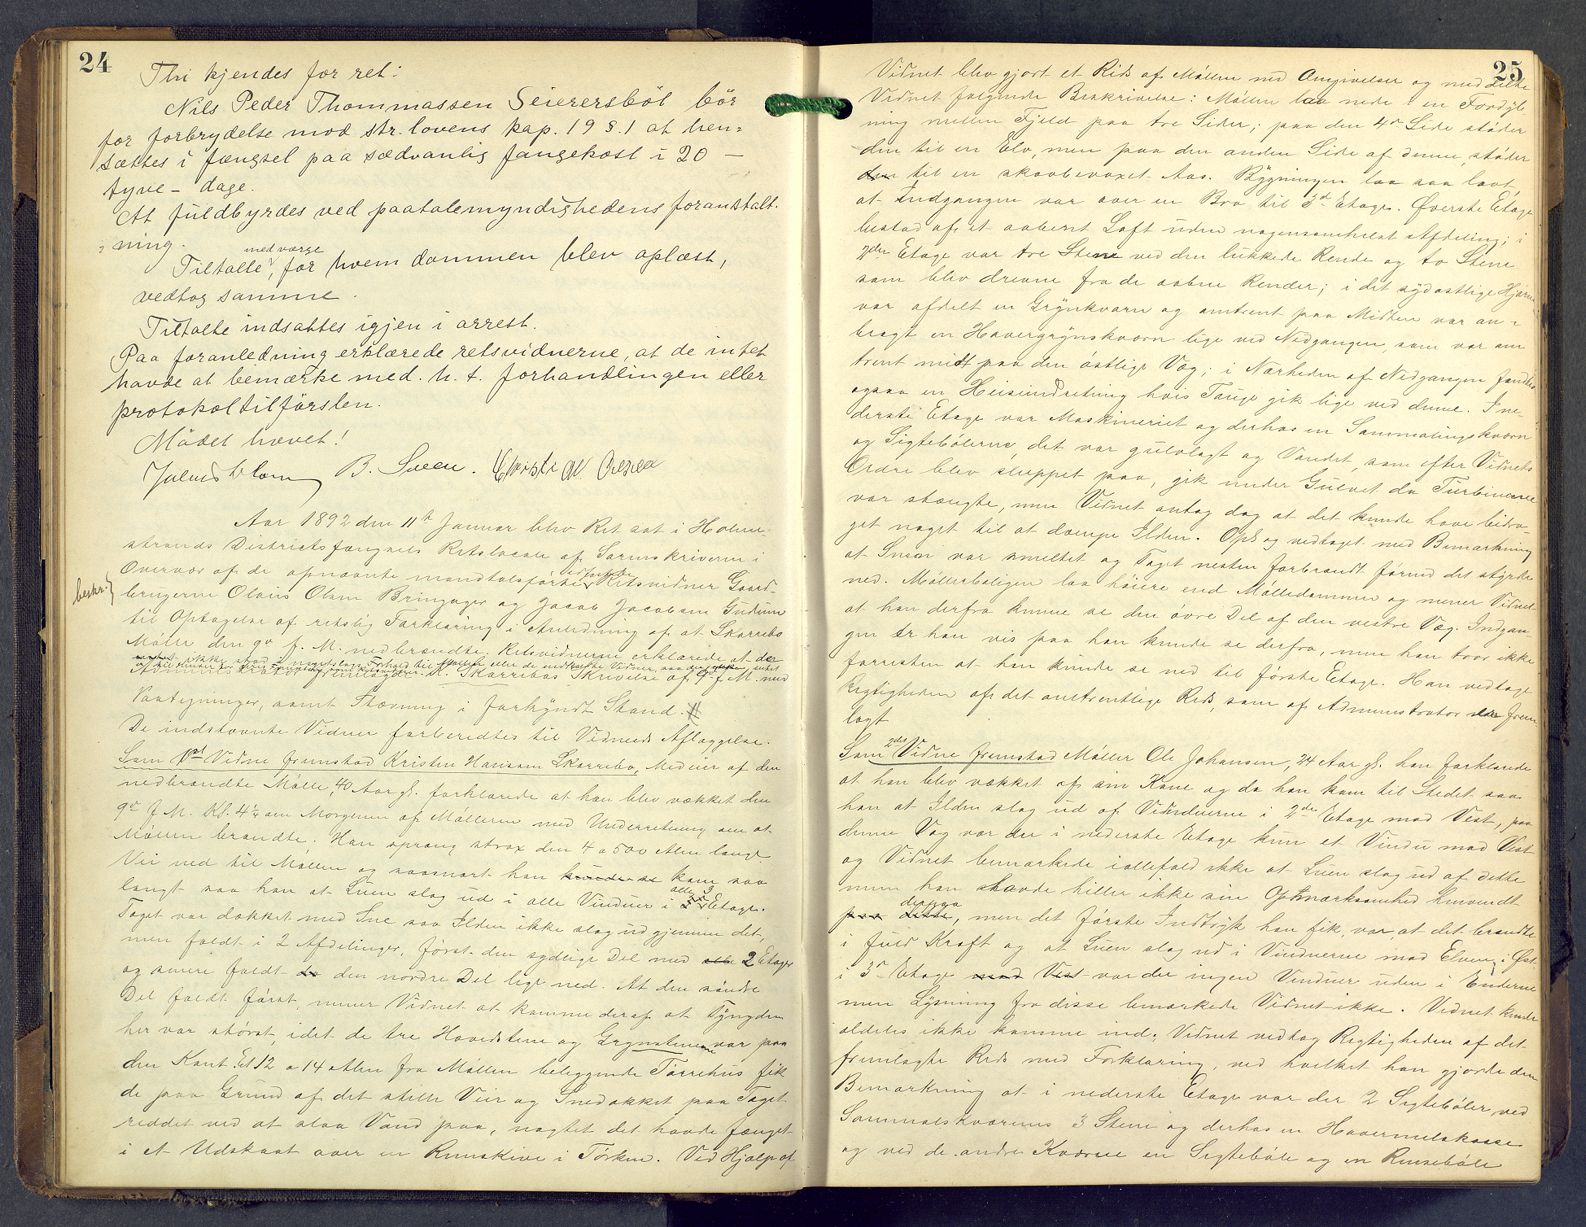 24
Thi kjendes for ret:
Nils Peder Thommassen Seierersböl bör
for forbrydelse mod str. lovens kap. 19 § 1 at hen-
sættes i fængsel paa sædvanlig fangekost i 20 —
tyve — dage.
At fuldbyrdes ved paatalemyndighedens foranstalt-
ning.
Tiltalte, med værge for hvem dommen blev oplæst,
vedtog samme.
Tiltalte indsattes igjen i arrest.
Paa foranledning erklærede retsvidnerne, at de intet
havde at bemærke med. h. t. forhandlingen eller
protokoltilförslen.
Mödet hævet!
Julius Blom B. Sveen.
Aar 1892 den 11te Januar blev Ret sat i Holme-
strands Districtsfængsels Retslocale af Sorenskriveren i
Overvær af de opnævnte mandtalsførte Retsvidner Gaard-
brugerne Olaus Olsen Bringager og Jacob Jacobsen Gudum
til Optagelse af retslig Forklaring i Anledning af at Skarrebo
beskr.
Mølle den 9de f. M. nedbrændte. Retsvidnerne erklærede at der
Skarrebos Skrivelse af 9de f. M. med
Paategninger, samt Stævning i forkyndt Stand. #
De indstævnte Vidner forberedtes til Vidneds Aflæggelse.
Som 1ste Vidne fremstod Kristen Hansen Skarrebo, Medeier af den
nedbrændte Mølle, 40 Aar gl. forklarede at han blev vækket den
9de f. M. Kl. 4½ om Morgenen af Mølleren med Underretning om at
Møllen brændte. Han sprang strax den 4 a 500 Alen lange
Vei ned til Møllen og saasnart han kom saa
langt saa han at Luen slog ud i alle Vinduer i alle 3 Etager.
Taget var dækket med Sne saa Ilden ikke slog ud gjennem det,
men faldt i 2 Afdelinger, først den sydlige Del med 2 Etager
og senere faldt den nordre Del lige ned. At den søndre
Del faldt først, mener Vidnet at komme deraf at Tyngden
her var størst, idet de tre Hovedstene og Grynstenene var paa
den Kant. Et 12 a 14 Alen fra Møllen beliggende Tørrehus fik
de paa Grund af det stille Veir og Snedækket paa Taget
reddet ved at slaa Vand paa, nagtet det havde fænget
i et Udskaat over en Remskive i Tørken. Ved Hjælp af
25
Vidnet blev gjort et Rids af Møllen med Angivelser og meddelte
Vidnet følgende Beskrivelse: Møllen laa nede i en Fordyb-
ning mellem Fjeld paa tre Sider; paa den 4de Side støder
den til en Elv, men paa den anden Side af denne støder
den til en skovbevoxet Aas. Bygningen laa saa lavt,
at Indgangen var over en Bro til 3die Etage. Øverste Etage
bestod af et aabent Loft uden nogensomhelst Afdeling; i
2den Etage var tre Stene ved den lukkede Rende og to Stene
som blev drevne fra de aabne Render; i det sydøstlige Hjørne
var afdelt en Grynkværn og omtrent paa Midten var an-
bragt en Havregrynskværn lige ved Nedgangen, som var om
trent midt paa den østlige Væg; i Nærheden af Nedgangen fandtes
ogsaa en Heisindretning hvis Touge gik lige ved denne. I ne-
derste Etage var Maskineriet og derhos en Sammalingskværn
og Sigtebølerne, det var gulvlagt og Vandet, som efter Vidnets
Ordre blev sluppet paa, gik under Gulvet da Turbinerne
var stængte, men Vidnet antog dog at det kunde have bidra-
get noget til at dæmpe Ilden. Opl. og vedtaget med Bemærkning
at Sneen var smeltet og Taget nesten forbrændt førend det styrte
ned. Møllerboligen laa høiere end Mølledammen og mener Vidnet
at han derfra kunne se den övre Del af den vestre Væg. Indgan-
gen er han vis paa han kunde se derfra, men han tror ikke
forresten at han kunde se ned til første Etage. Han vedtog
Rigtigheden af det omtrentlige Rids, som af Administrator frem
lagt.
Som 2det Vidne fremstod Møller Ole Johansen, 24 Aar gl. han forklarede
at han blev vækket af sin Kone og da han kom til Stedet saa
han at Ilden slog ud af Vinduerne i 2den Etage mod Vest, paa
denne Væg var der i nederste Etage kun et Vindu mod Vest
og Vidnet bemærkede iallefald ikke at Luen slog ud af dette
men han havde heller ikke sin Opmærksomhed henvendt
derpaa, men det første Indtryk han fik, var at det brændte
i fuld Kraft og at Luen slog ud i Vinduerne mod Elven i Øst
i 3die Etage var der ingen Vinduer uden i Enderne
men Lysning fra disse bemærkede Vidnet ikke. Vidnet kunde
aldeles ikke komme ind. Vidnet vedtog Rigtigheden af det
fremlagte Rids med Forklaring, ved hvilket han gjorde den
Bemærkning at i nederste Etage var der 2 Sigtebøler ved
Sammalskværnens 3 Stene og derhos en Havremelskasse
og ved de andre Kværne en Sigtebøle og en Rensebøle